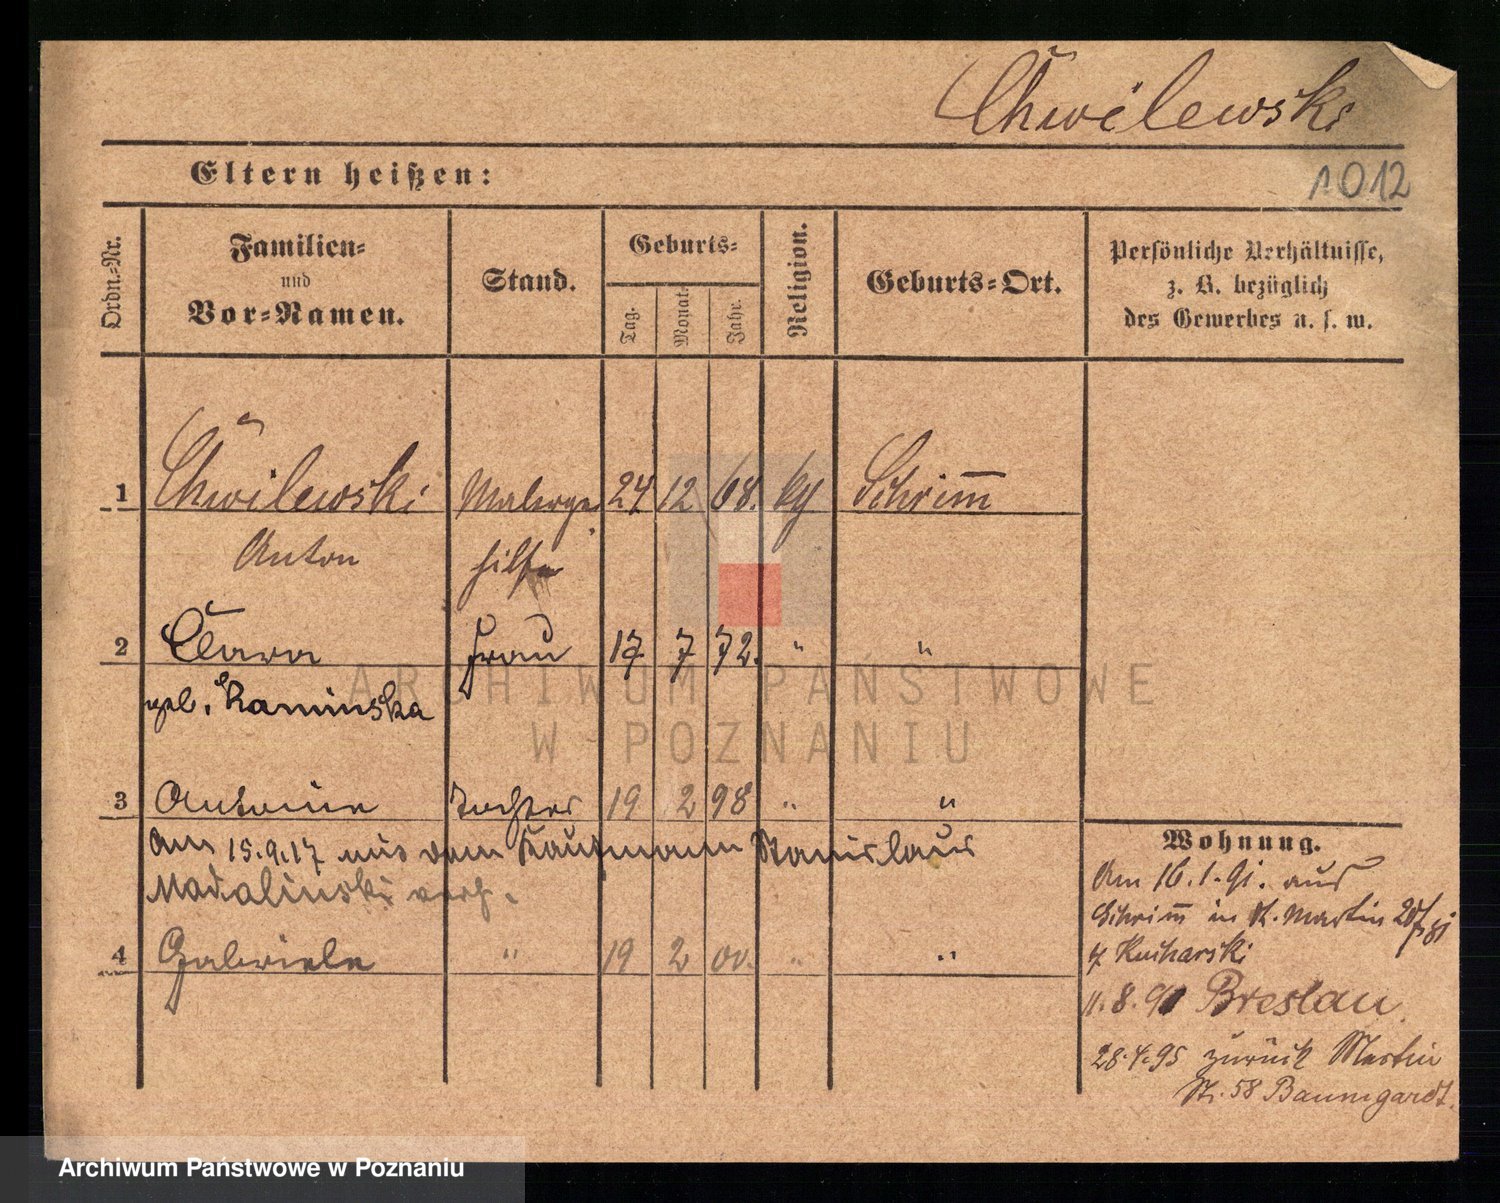 Chwilewski
Eltern heißen:
1012
Ordn.-Nr.
Familien-
und
Vor-Namen.
Stand.
Geburts-
Tag.
Monat.
Jahr.
Religion.
Geburts-Ort.
Persönliche Verhältnisse,
z. B. bezüglich
des Gewerbes u. s. w.
1 Chwilewski Malerge 24 12 68. Schrimm
Anton hilfe
2 Clara Frau 17 7 72. " "
geb. Kaminska
3 Antonie Tochter 19 2 98 " "
Am 15.9.17 mit dem Kaufmann Stanislaus
Madalinski verh.
4 Gabriele " 19 2 00. " "
Wohnung.
Am 16.1.91. aus
Schrimm in St. Martin
Kucharski
11.8.91 Breslau.
28.4.95 zurück Martin
St. 58 Baumgardt.
ARCHIWUM PAŃSTWOWE
W POZNANIU
Archiwum Państwowe w Poznaniu